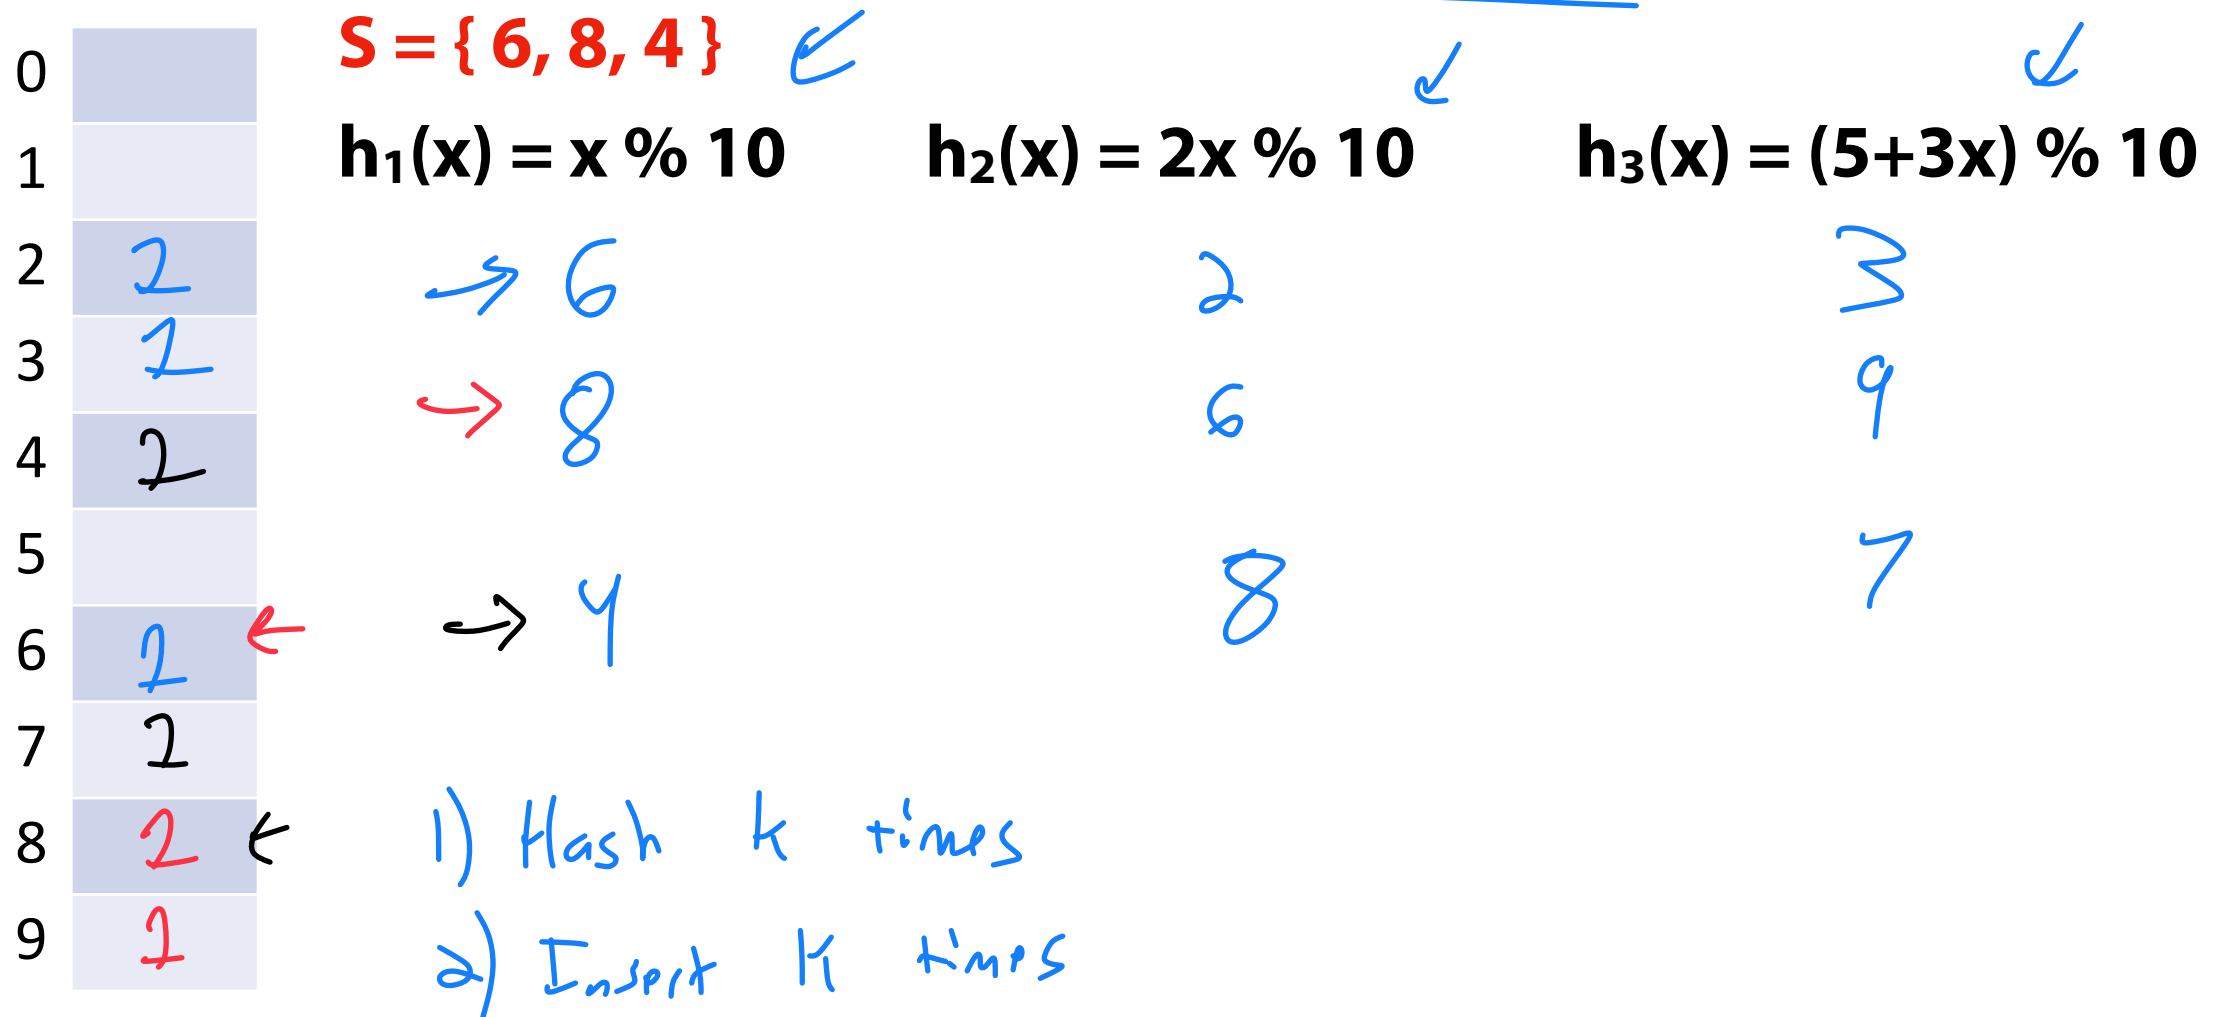 0
1
2 1
3 1
4 1
5
6 1
7 1
8 1
9 1
S = { 6, 8, 4 }
h₁(x) = x % 10 h₂(x) = 2x % 10 h₃(x) = (5+3x) % 10
6 2 3
8 6 9
4 8 7
1) Hash k times
2) Insert k times